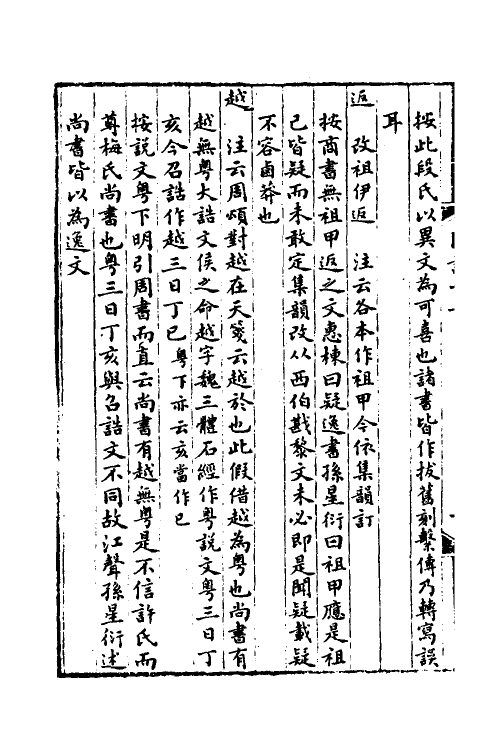 按此段氏以異文為可喜也諸書皆作拔舊刻繫傳乃轉寫誤
耳
返　改祖伊返　注云各本作祖甲今依集韻訂
按商書無祖甲返之文惠棟曰疑逸書孫星衍曰祖甲應是祖
己皆疑而未敢定集韻改从西伯戡黎文未必即是闕疑載疑
不容鹵莽也
越　注云周頌對越在天箋云越於也此假借越為粵也尚書有
越無粵大誥文侯之命越字魏三體石經作粵說文粵三日丁
亥今召誥作越三日丁巳粵下亦云亥當作巳
按說文粵下明引周書而直云尚書有越無粵是不信許氏而
尊梅氏尚書也粵三日丁亥與召誥文不同故江聲孫星衍述
尚書皆以為逸文